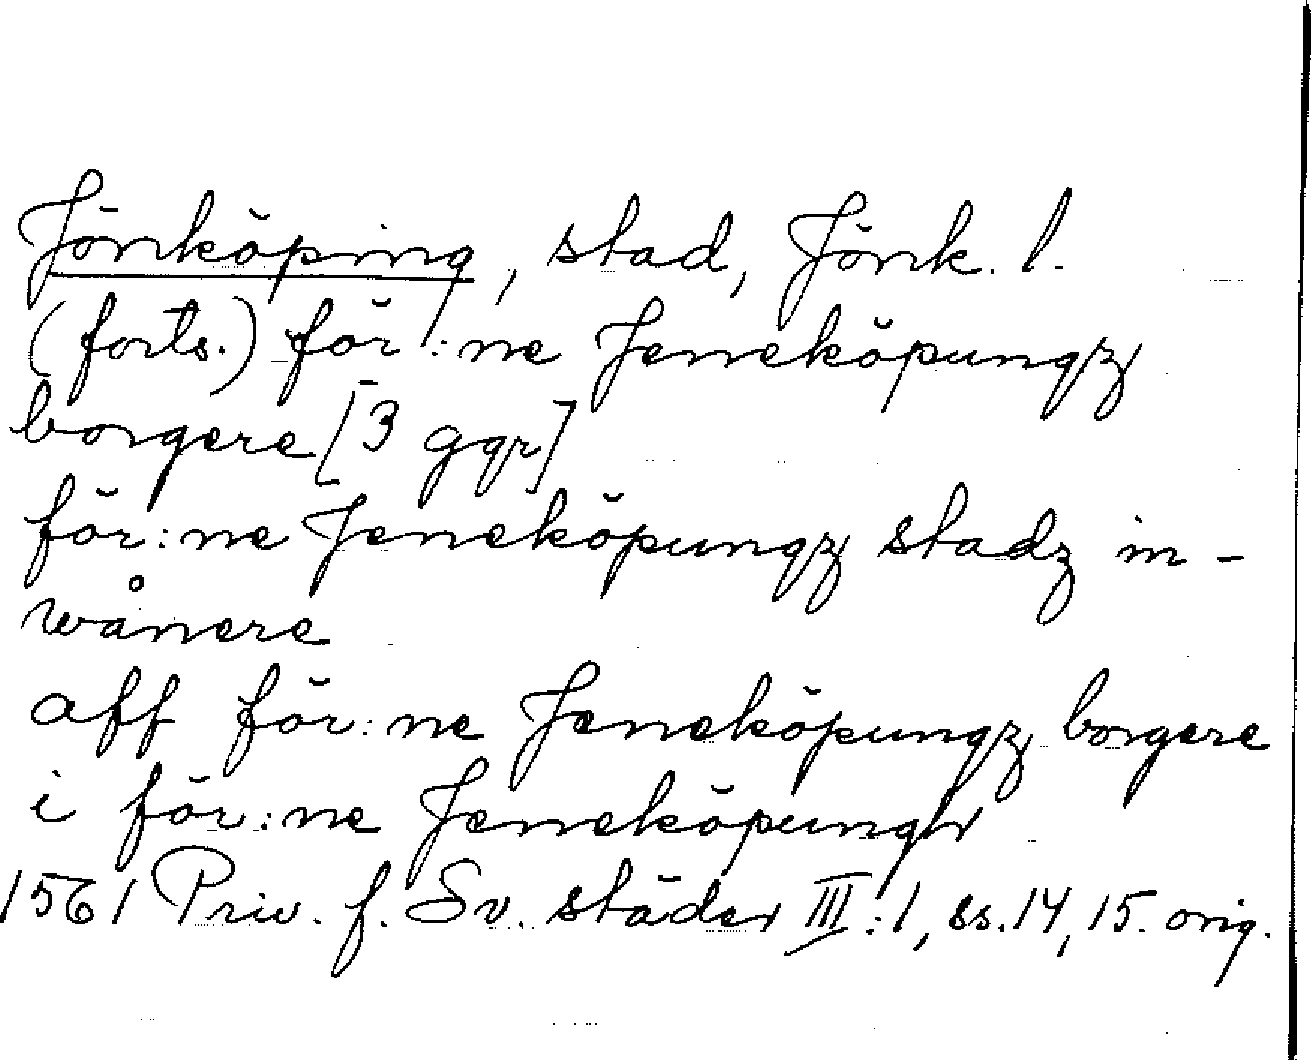 Jönköping, stad, Jönk. l.
(forts.) för:ne Jeneköpungz
borgere [3 ggr]
för:ne Jeneköpungz stadz in-
wånere
aff för:ne Jeneköpungz borgere
i för:ne Jeneköpungh
1561 Priv. f. Sv. städer III:1, ss. 14, 15. orig.